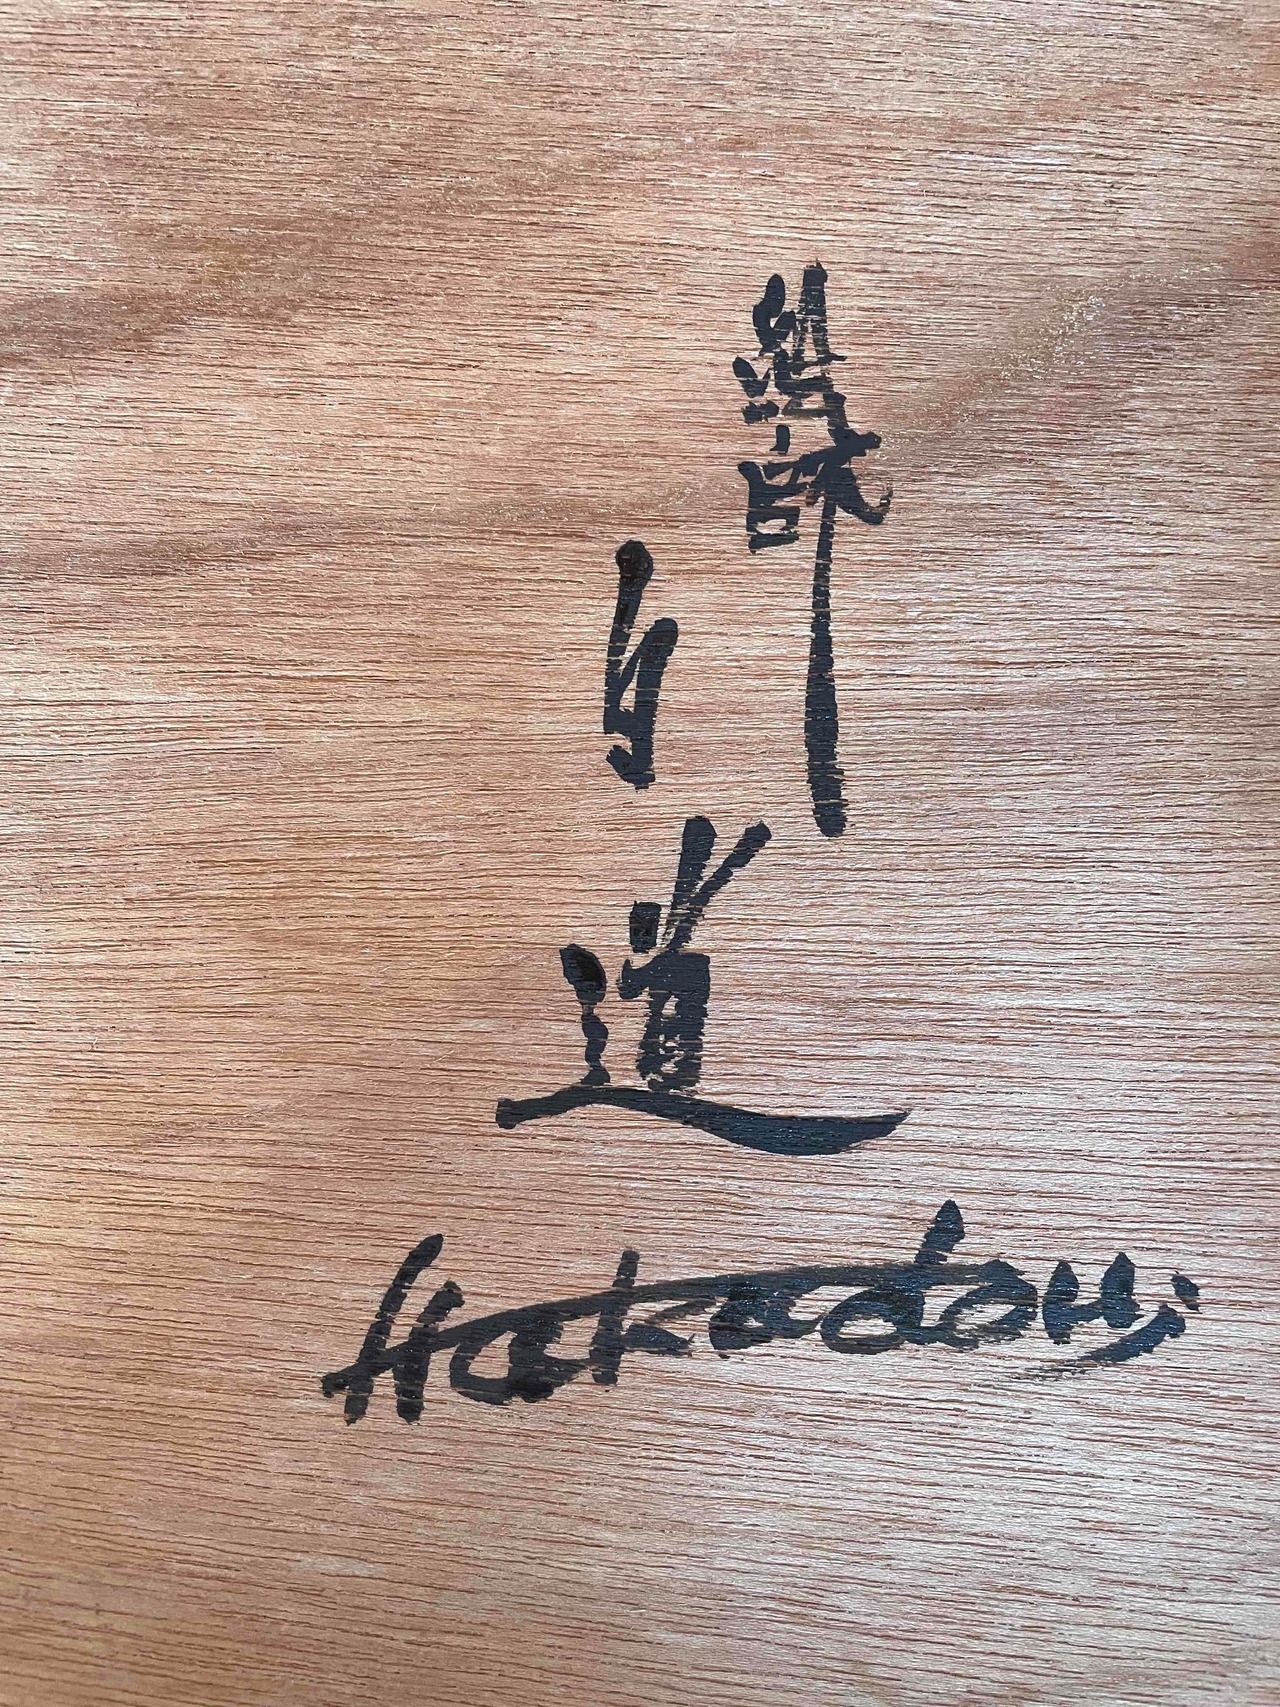 絵師
白道
Hakudou